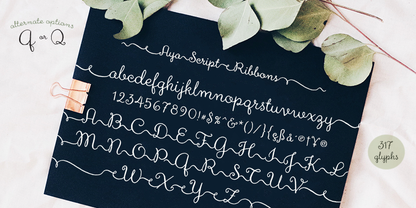 alternate options
Q or Q
Aya Script Ribbons
abcdefghijklmnopqrstuvwxyz
1234567890!#$%^&*()/{§ß
ABCDEFGHIJKL
MNOPQRSTUV
WXYZ
317
glyphs